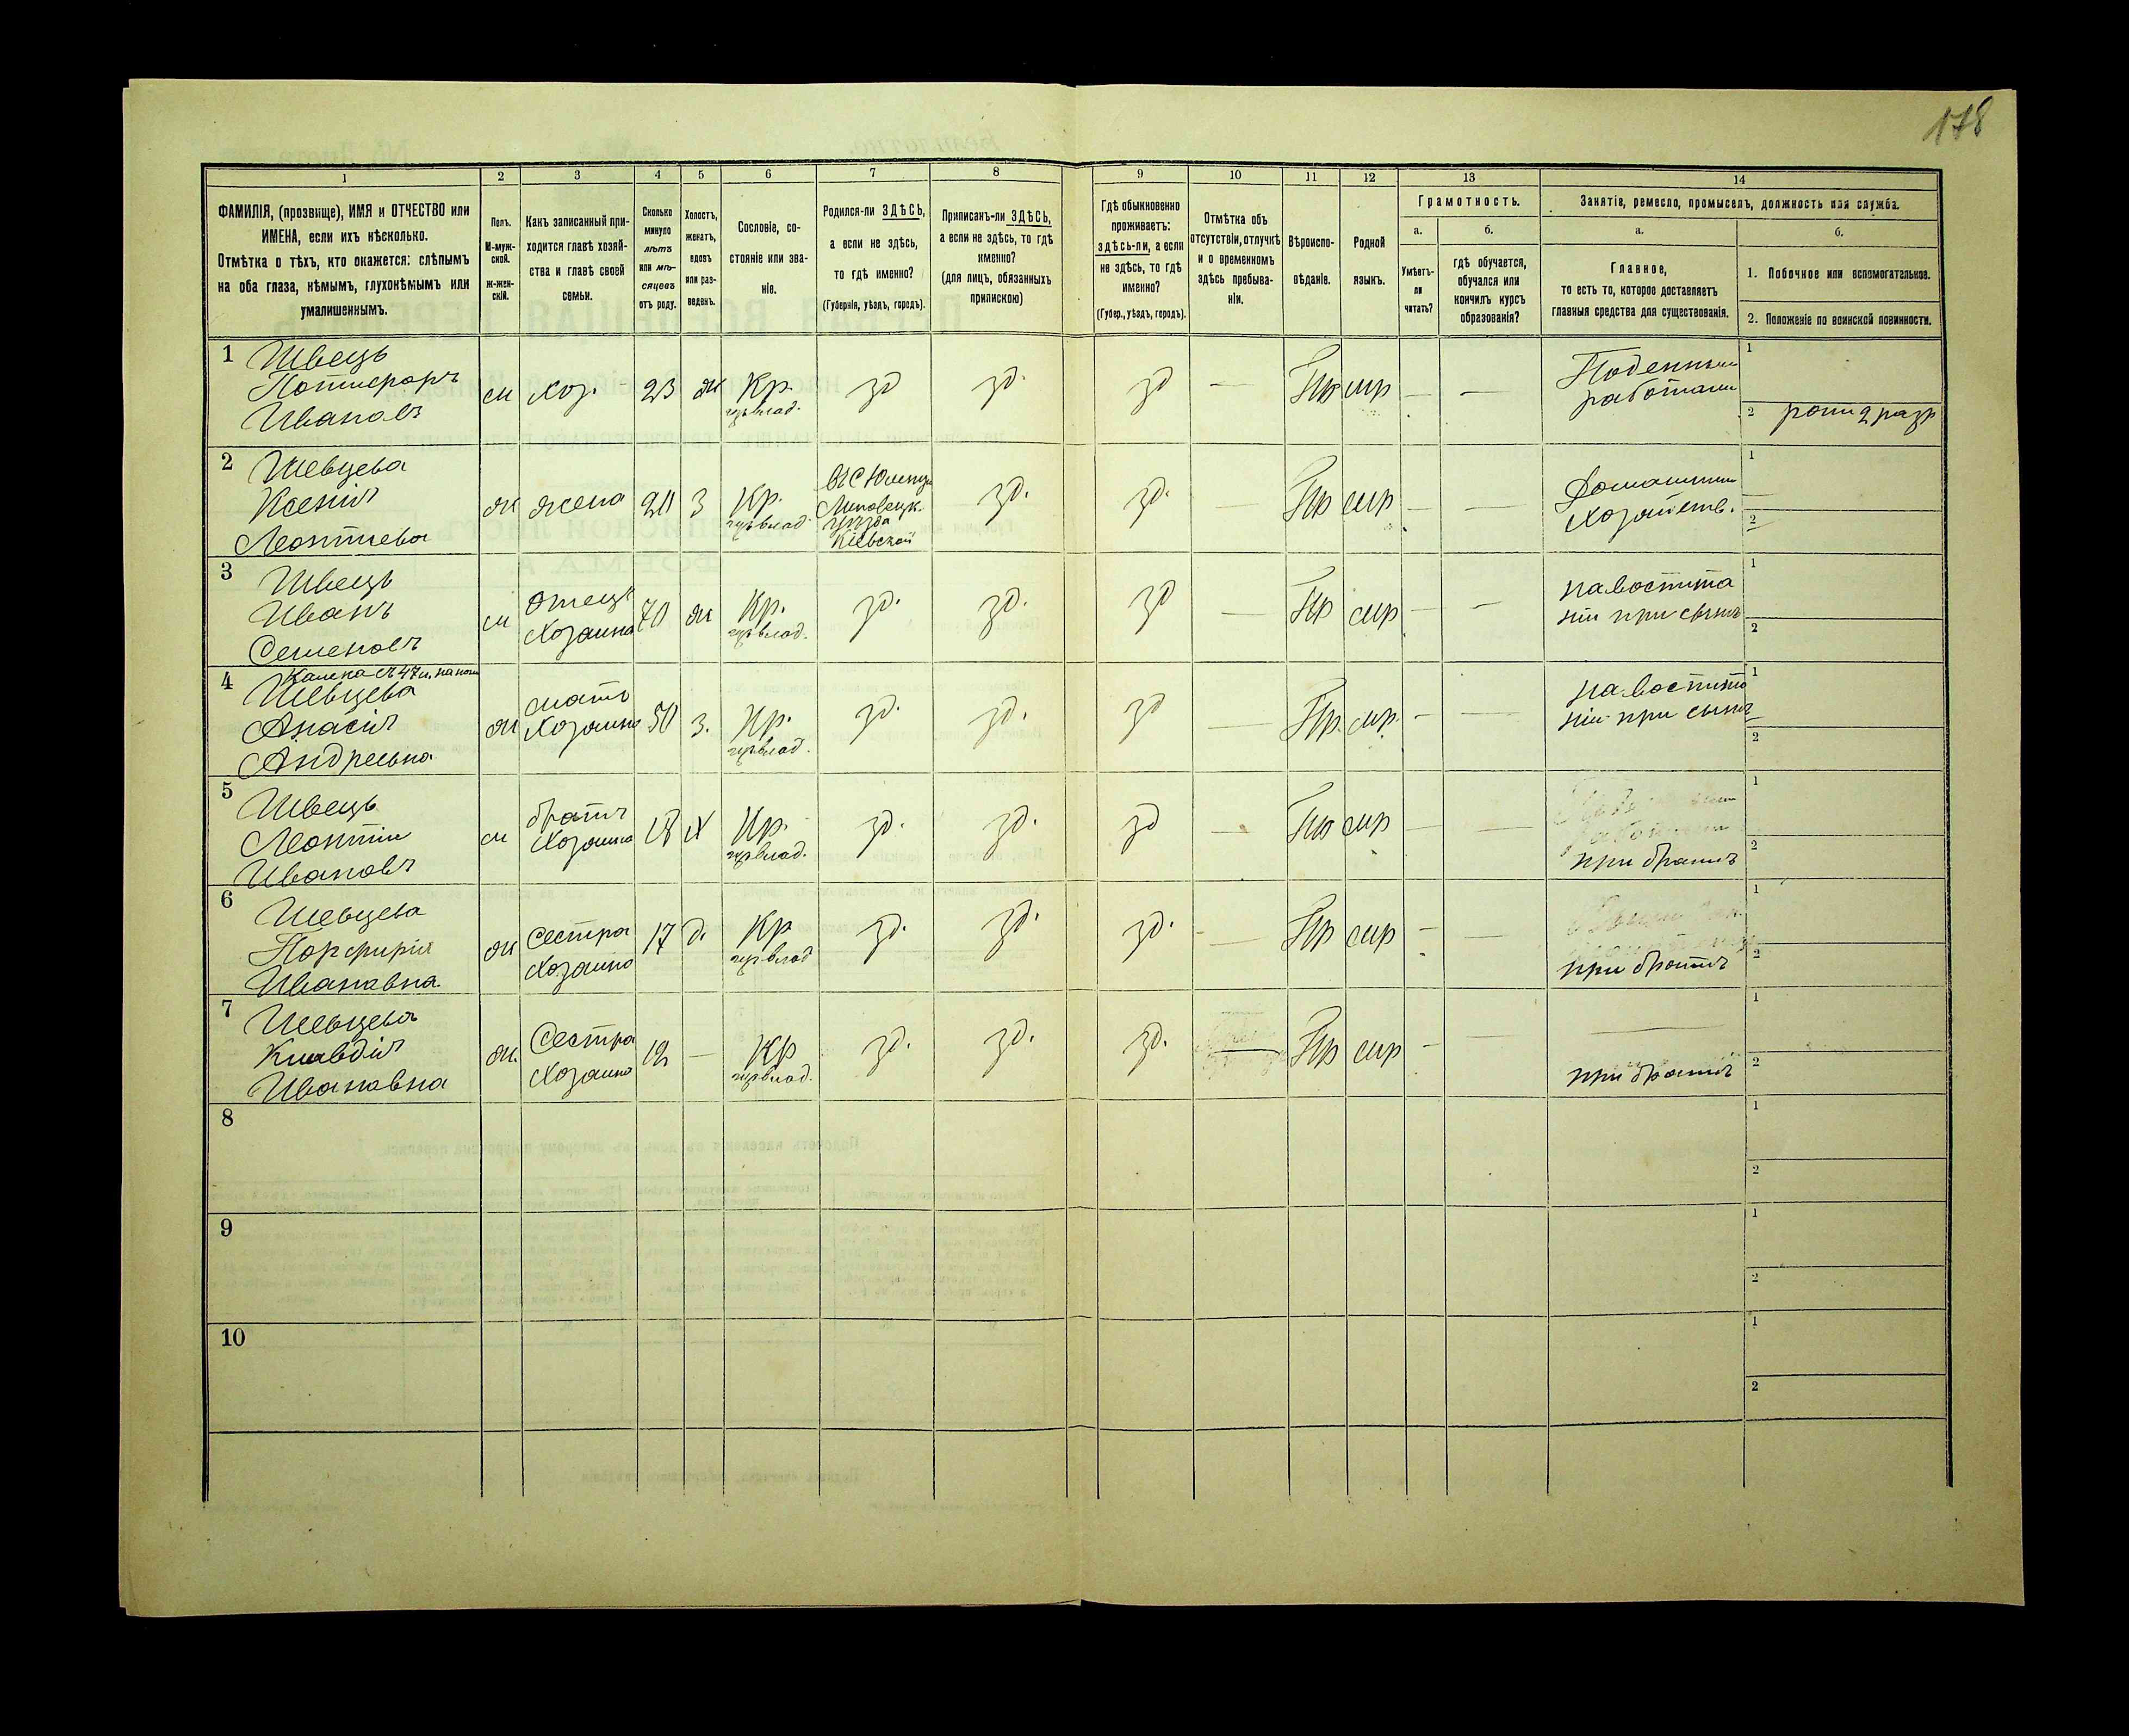 178
1 2 3 4 5 6 7 8 9 10 11 12 13 14
ФАМИЛІЯ, (прозвище), ИМЯ и ОТЧЕСТВО или
ИМЕНА, если ихъ нѣсколько.
Отмѣтка о тѣхъ, кто окажется: слѣпымъ
на оба глаза, нѣмымъ, глухонѣмымъ или
умалишеннымъ.
Полъ.
М-муж-
ской.
ж-жен-
скій.
Какъ записанный при-
ходится главѣ хозяй-
ства и главѣ своей
семьи.
Сколько
минуло
лѣтъ
или мѣ-
сяцевъ
отъ роду.
Холостъ,
женатъ,
вдовъ
или раз-
веденъ.
Сословіе, со-
стояніе или зва-
ніе.
Родился-ли ЗДѢСЬ,
а если не здѣсь,
то гдѣ именно?
(Губернія, уѣздъ, городъ).
Приписанъ-ли ЗДѢСЬ,
а если не здѣсь, то гдѣ
именно?
(для лицъ, обязанныхъ
припискою)
Гдѣ обыкновенно
проживаетъ:
здѣсь-ли, а если
не здѣсь, то гдѣ
именно?
(Губер., уѣздъ, городъ).
Отмѣтка объ
отсутствіи, отлучкѣ
и о временномъ
здѣсь пребыва-
ніи.
Вѣроиспо-
вѣданіе.
Родной
языкъ.
Грамотность.
а.
Умѣетъ-
ли
читать?
б.
гдѣ обучается,
обучался или
кончилъ курсъ
образованія?
Занятіе, ремесло, промыселъ, должность или служба.
а.
Главное,
то есть то, которое доставляетъ
главныя средства для существованія.
б.
1. Побочное или вспомогательное.
2. Положеніе по воинской повинности.
1 Швець
Иванов
м хоз. - 23 ж Кр. зд зд. зд — Пр мр — —
Поденный
работами
1
2
2 Шевцева
Ксенія
Леонтіева
ж жена 20 з Кр. зд. зд. Пр мр — —
Липовецк.
уѣзда
Кіевской
Домашним
Хозяйств.
1
2
3 Швець
Иванъ
Семеновъ
м Отецъ
Хозяина
70 ж Кр. зд. зд. зд — Пр мр — —
на воспита
ніи при сынѣ
1
2
4 Шевцева
Андреевна
ж мать
Хозяина
50 з. Кр. зд. зд. зд — Пр. мр. — —
на воспита
ніи при сынѣ
1
2
5 Швець
Леонтій
Ивановъ
м братъ
Хозяина
18 х Кр. зд. зд. зд — Пр мр — —
при братѣ
1
2
6 Шевцева
Порфирія
Ивановна
ж Сестра
Хозяина
17 д. Кр зд. зд. зд. — Пр мр — —
при братѣ
1
2
7 Шевцева
Клавдія
Ивановна
ж. Сестра
Хозяина
12 — Кр зд. зд. зд. — Пр мр — —
при братѣ
1
2
8
1
2
9
1
2
10
1
2